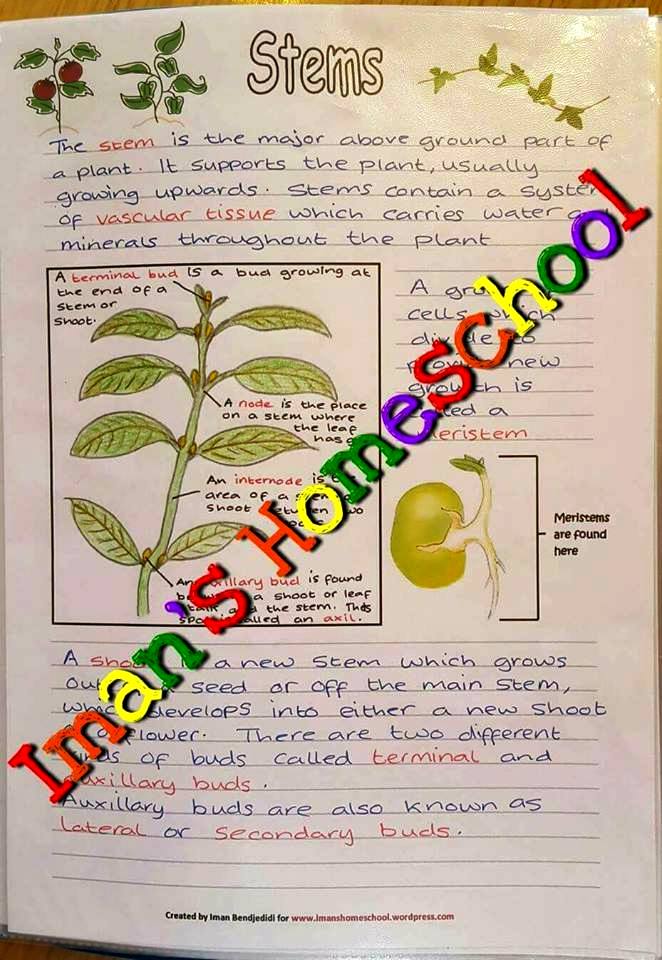 Stems
The stem is the major above ground part of
a plant. It supports the plant, usually
growing upwards. Stems contain a system
of vascular tissue which carries water
minerals throughout the plant
A terminal bud is a bud growing at
the end of a
stem or
shoot.
A node is the place
on a stem where
the leaf
has
An internode is
area of a stem
shoot between two
An auxillary bud is found
a shoot or leaf
and the stem. This
called an axil.
A
cells which
divide to
provide new
growth is
called a
meristem
Meristems
are found
here
A shoot is a new stem which grows
out seed or off the main stem,
which develops into either a new shoot
flower. There are two different
kinds of buds called terminal and
auxillary buds.
Auxillary buds are also known as
lateral or secondary buds.
Iman's Homeschool
Created by Iman Bendjedidi for www.imanshomeschool.wordpress.com